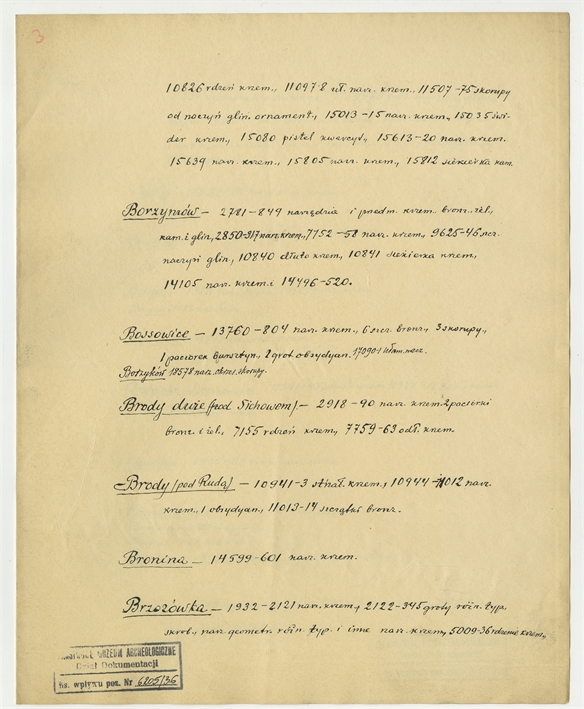 3
10826 rdzeń krzem., 11097-8 uł. narz. krzem. 11507-75 skorupy
od naczyń glin. ornament., 15013-15 narz. krzem, 15035 świ-
der krzem., 15080 pistel kwarcyt., 15613-20 narz. krzem.
15639 narz. krzem., 15805 narz. krzem., 15812 siekierka kam.
Borzymów - 2781-849 narzędzia i przedm. krzem. bronz., żel.,
kam. i glin, 2850-917 narz. krzem., 7752-58 narz. krzem, 9625-46 szcz.
naczyń glin., 10840 dłuto krzem, 10841 siekierka krzem,
14105 narz. krzem. i 14496-520.
Bossowice - 13760-804 narz. krzem., 6 szcz. bronz., 3 skorupy,
1 paciorek bursztyn., 2 grot. obsydyan. 17090-1 ułam. nacz.
Borzyków 18578 narz. okrzes. skorupy.
Brody duże (pod Sichowem) - 2918-90 narz. krzem. 2 paciorki
bronz. i żel., 7155 rdzeń krzem, 7759-63 odł. krzem.
Brody (pod Rudą) - 10941-3 strzał. krzem., 10944-11012 narz.
krzem., 1 obsydyan., 11013-14 szczątki bronz.
Bronina - 14599-601 narz. krzem.
Brzozówka - 1932-2121 narz. krzem., 2122-345 groty różn. typ.
skrob., narz. geometr. różn. typ. i inne narz. krzem, 5009-36 rdzenie krzem.,
MUZEUM ARCHEOLOGICZNE
Dział Dokumentacji
Ks. wpływu poz. Nr 6205/36